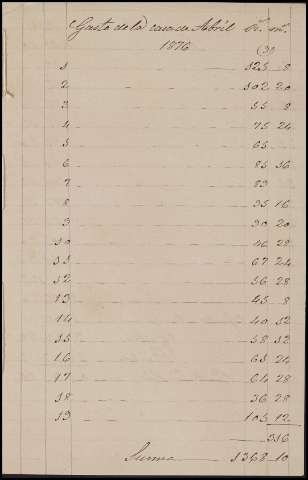 Gasto de la casa de Abril Rs. ms.
1876
(9)
1 125 8
2 102 20
3 55 8
4 75 24
5 65
6 85 16
7 83
8 35 16
9 90 20
10 46 28
11 67 24
12 56 28
13 45 8
14 40 12
15 58 12
16 65 24
17 64 28
18 36 28
19 105 12
316
Suma 1368 10